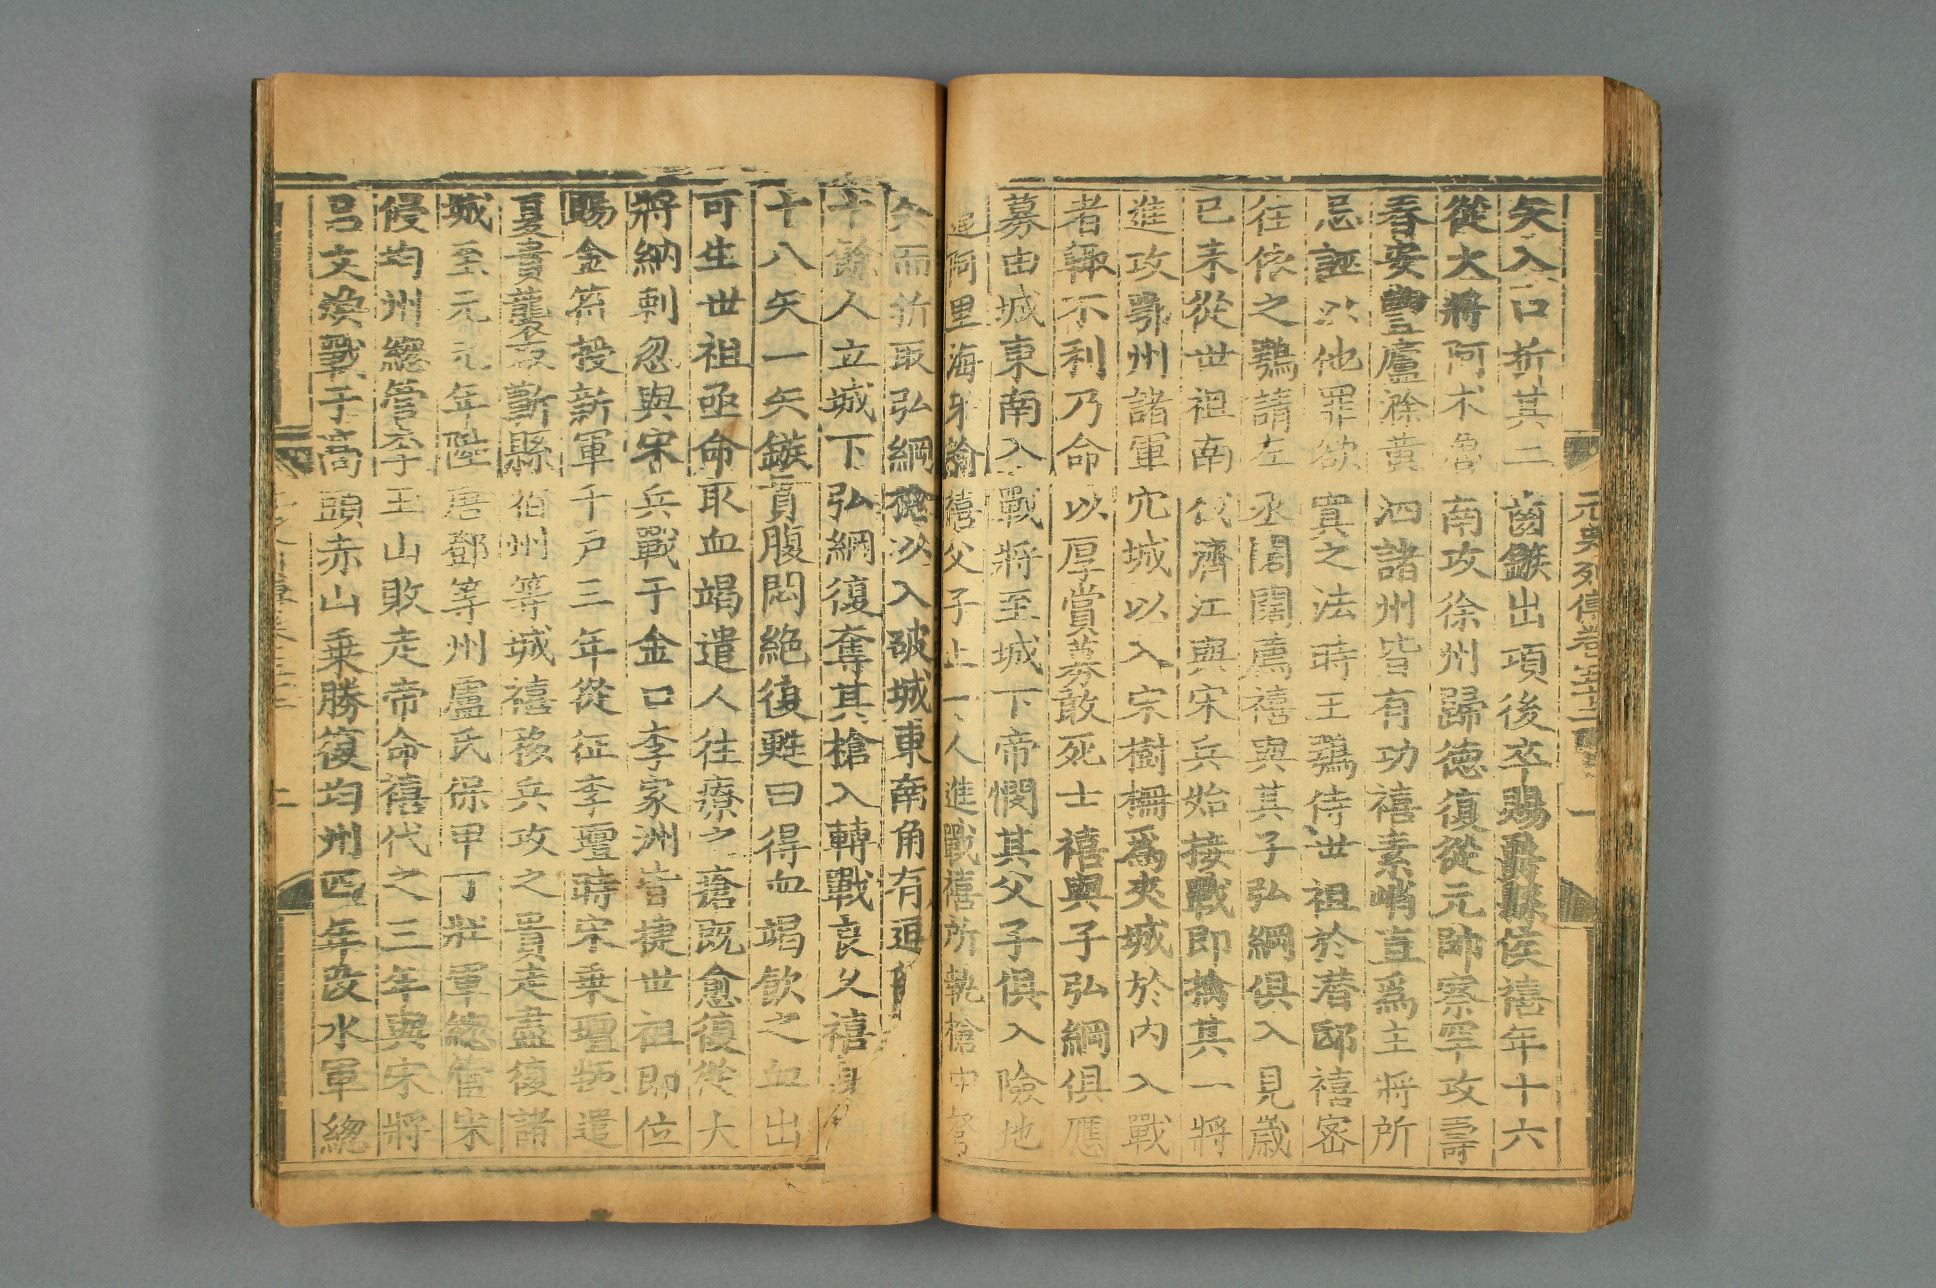 元史列傳卷五十二 一
矢入口折其二齒鏃出項後卒賜爵縣侯禧年十六
從大將阿术魯南攻徐州歸德復從元帥察罕攻壽
春安豐廬滁黃泗諸州皆有功禧素峭直爲主將所
忌誣以他罪欲寘之法時王鶚侍世祖於潛邸禧密
往依之鶚請左丞闊闊薦禧與其子弘綱俱入見歲
己未從世祖南伐濟江與宋兵始接戰即擒其一將
進攻鄂州諸軍穴城以入宋樹柵爲夾城於內入戰
者輒不利乃命以厚賞募敢死士禧與子弘綱俱應
募由城東南入戰將至城下帝憫其父子俱入險地
遣阿里海牙諭禧父子止一人進戰禧所執槍中弩
矢而折取弘綱槍以入破城東南角有逗
十餘人立城下弘綱復奪其槍入轉戰良久禧身
十八矢一矢鏃貫腹悶絕復甦曰得血竭飲之血出
可生世祖亟命取血竭遣人往療之瘡既愈復從大
將納剌忽與宋兵戰于金口李家洲皆捷世祖即位
賜金符授新軍千戶三年從征李璮時宋乘璮叛遣
夏貴襲取蘄縣宿州等城禧移兵攻之貴走盡復諸
城至元元年陞唐鄧等州盧氏保甲丁壯軍總管宋
侵均州總管李玉山敗走帝命禧代之三年與宋將
呂文煥戰于高頭赤山乘勝復均州四年改水軍總